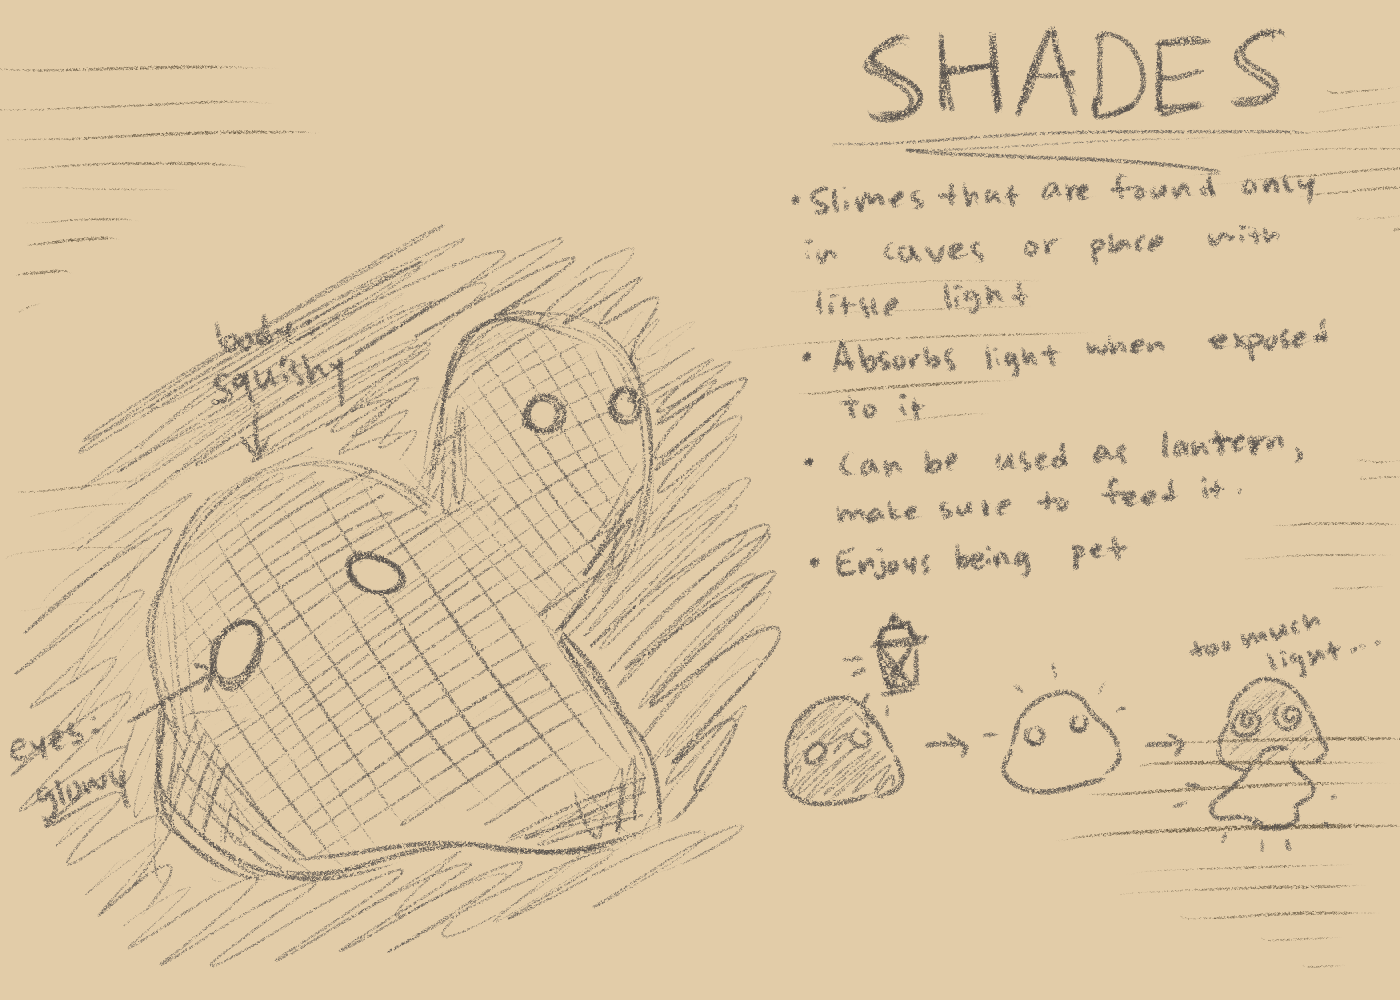 SHADES
• Slimes that are found only
in caves or place with
little light
• Absorbs light when exposed
to it
• Can be used as lantern,
make sure to feed it.
• Enjoys being pet
body:
squishy
eyes:
glowy
too much
light...